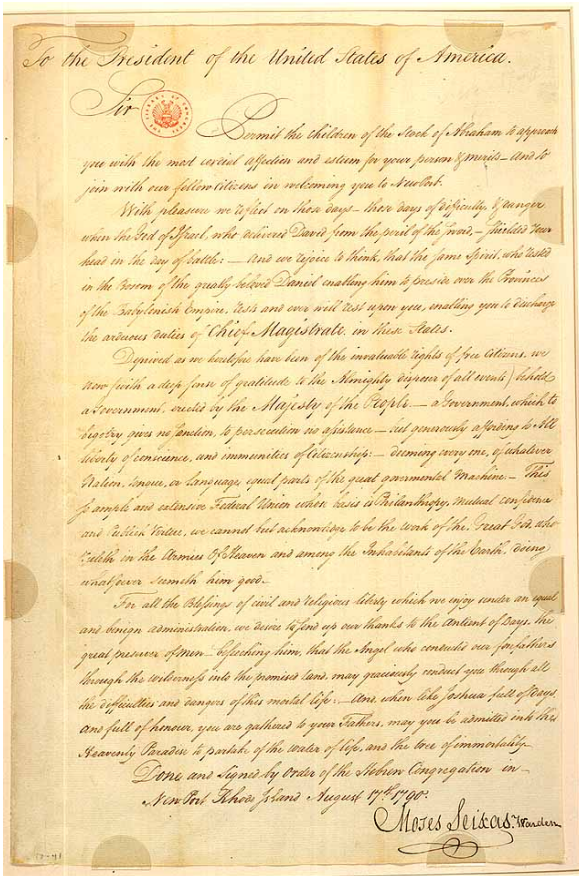 To the President of the United States of America.
Sir
Permit the children of the Stock of Abraham to approach
you with the most cordial affection and esteem for your person & merits – and to
join with our fellow Citizens in welcoming you to NewPort.
With pleasure we reflect on those days – those days of difficulty, & danger
when the God of Israel, who delivered David from the peril of the sword, – shielded Your
head in the day of battle: – And we rejoice to think, that the same Spirit, who rested
in the Bosom of the greatly beloved Daniel enabling him to preside over the Provinces
of the Babylonish Empire, rests and ever will rest upon you, enabling you to discharge
the arduous duties of Chief Magistrate in these States.
Deprived as we heretofore have been of the invaluable rights of free Citizens, we
now (with a deep sense of gratitude to the Almighty disposer of all events) behold
a Government, erected by the Majesty of the People. – a Government, which to
bigotry gives no sanction, to persecution no assistance – but generously affording to All
liberty of conscience, and immunities of Citizenship: – deeming every one, of whatever
Nation, tongue, or language equal parts of the great governmental Machine: – This
so ample and extensive Federal Union whose basis is Philanthropy, Mutual confidence
and Publick Virtue, we cannot but acknowledge to be the work of the Great God, who
ruleth in the Armies Of Heaven and among the Inhabitants of the Earth, doing
whatsoever seemeth him good.
For all the Blessings of civil and religious liberty which we enjoy under an equal
and benign administration, we desire to send up our thanks to the Antient of Days, the
great preserver of Men – beseeching him, that the Angel who conducted our forefathers
through the wilderness into the promised land, may graciously conduct you through all
the difficulties and dangers of this mortal life: – And, when like Joshua full of days,
and full of honour, you are gathered to your Fathers, may you be admitted into the
Heavenly Paradise to partake of the water of life, and the tree of immortality.
Done and Signed by Order of the Hebrew Congregation in
NewPort Rhode Island August 17th 1790.
Moses Seixas, Warden